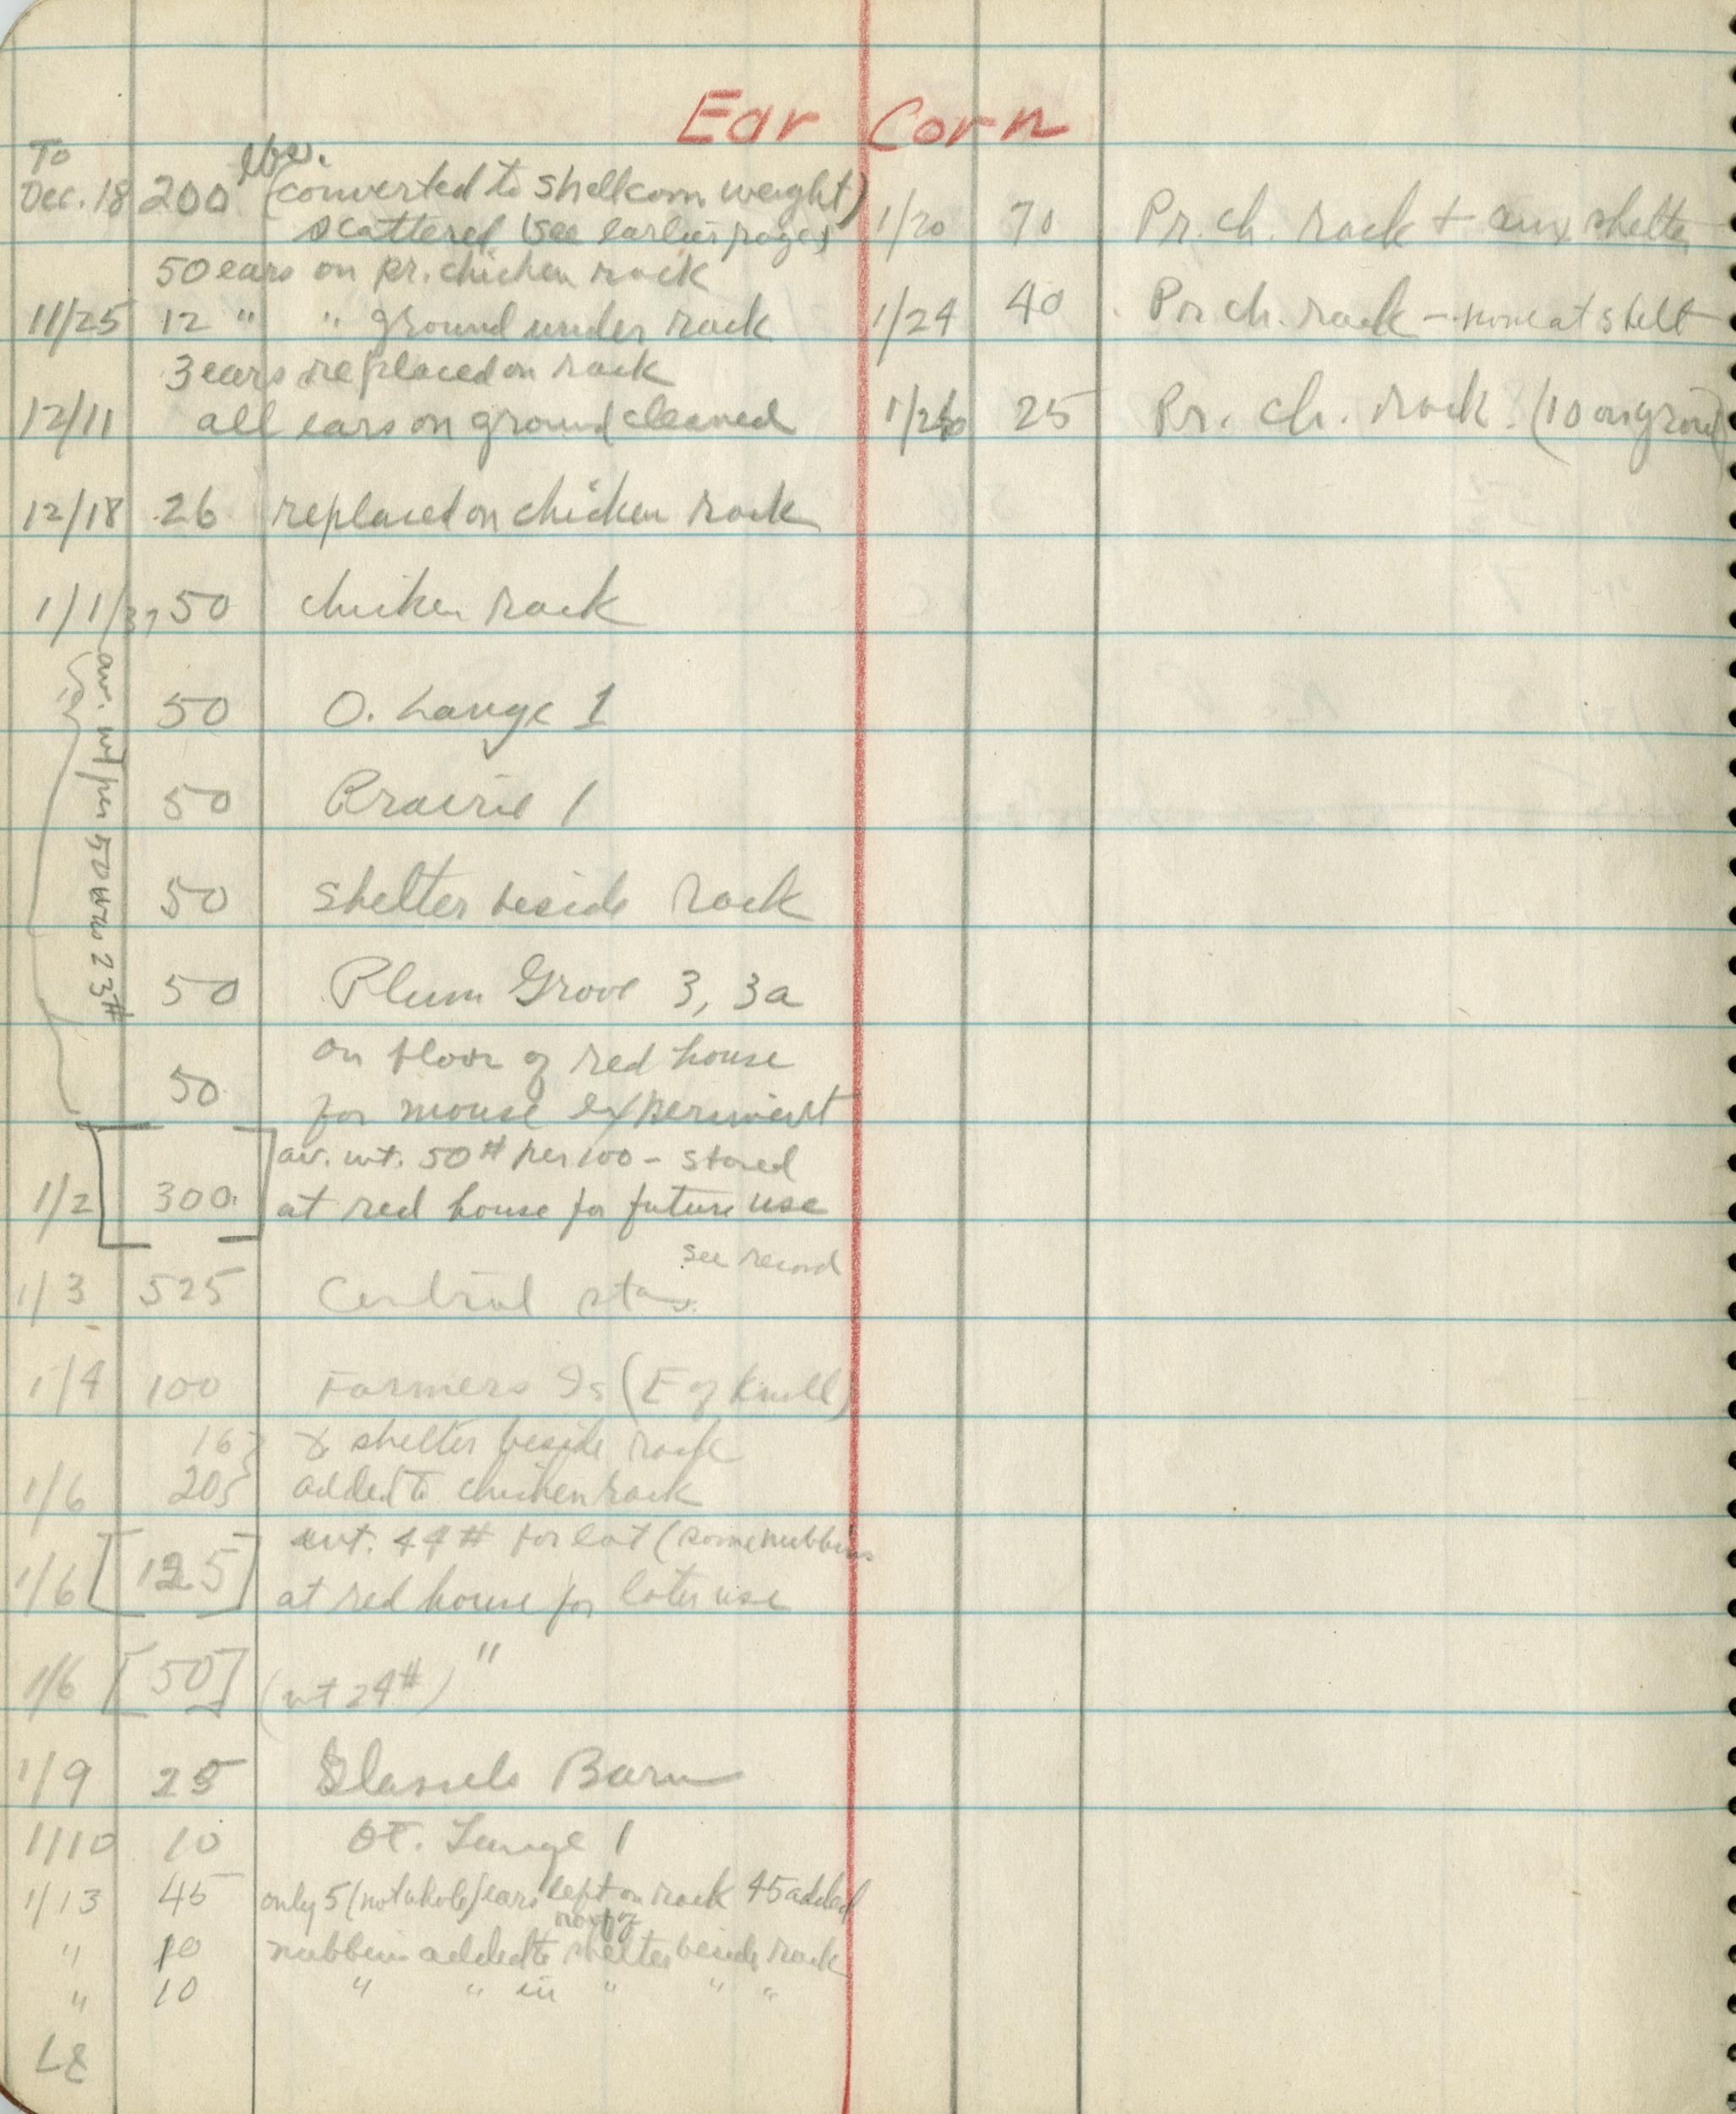 Ear Corn
To lbs.
Dec. 18 200 (converted to shellcorn weight)
scattered (see earlier pages)
50 ears on pr. chicken rack
11/25 12 " " ground under rack
3 ears replaced on rack
12/11 all ears on ground cleaned
12/18 26 replaced on chicken rack
1/1/37 50 chicken rack
50 O. Lange 1
50 Prairie 1
50 shelter beside rack
50 Plum Grove 3, 3a
on floor of red house
50 for mouse experiment
av. wt/per 50 was 23#
av. wt. 50# per 100 - stored
1/2 [300] at red house for future use
see record
1/3 525 Central sta.
1/4 100 Farmers Is (E of Knoll)
16 shelter beside rack
1/6 20 added to chicken rack
wt. 44# for lot (some nubbins
1/6 [125] at red house for later use
1/6 [50] (wt 24#) "
1/9 25 Barn
1/10 10 Ot. Lange 1
1/13 45 only 5 (not whole) ears left on rack 45 added
roof of
" 10 nubbins added to shelter beside rack
" 10 " " in " " "
37
1/20 70 Pr. ch. rack + aux shelter
1/24 40 Pr ch. rack - none at shelt
25 Pr. ch. rack. (10 on ground)